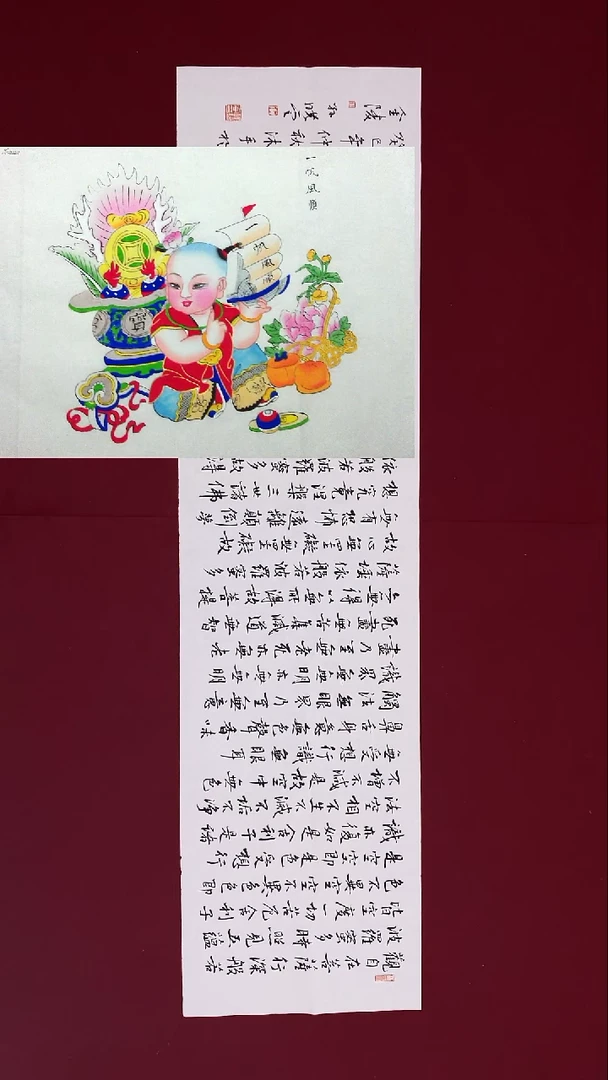 一帆風順
一帆風順
觀自在菩薩行深般若
波羅蜜多時照見五蘊
皆空度一切苦厄舍利子
色不異空空不異色色即
是空空即是色受想行
識亦復如是舍利子是諸
法空相不生不滅不垢不淨
不增不減是故空中無色
無受想行識無眼耳
鼻舌身意無色聲香味
觸法無眼界乃至無意
識界無無明亦無無明
盡乃至無老死亦無老
死盡無苦集滅道無智
亦無得以無所得故菩提
薩埵依般若波羅蜜多
故心無罣礙無罣礙故
無有恐怖遠離顛倒夢
想究竟涅槃三世諸佛
依般若波羅蜜多故得
癸巳年仲秋沐手於
金陵